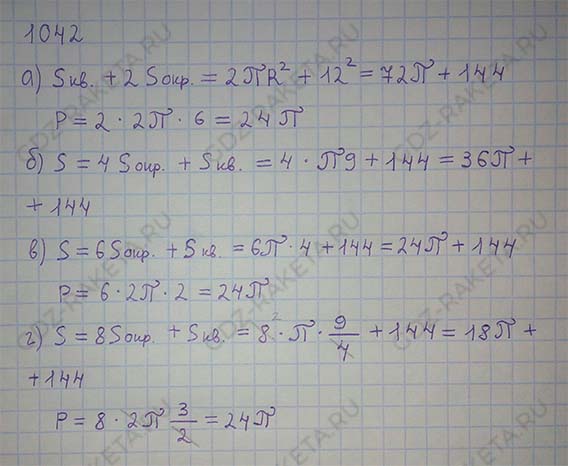 1042
а) Sкв. + 2 Sокр. = 2πR² + 12² = 72π + 144
P = 2 · 2π · 6 = 24π
б) S = 4 Sокр. + Sкв. = 4 · π9 + 144 = 36π +
+ 144
в) S = 6Sокр. + Sкв. = 6π · 4 + 144 = 24π + 144
P = 6 · 2π · 2 = 24π
г) S = 8Sокр. + Sкв. = 8² · π · 9/4 + 144 = 18π +
+ 144
P = 8 · 2π 3/2 = 24π
GDZ-RAKETA.RU